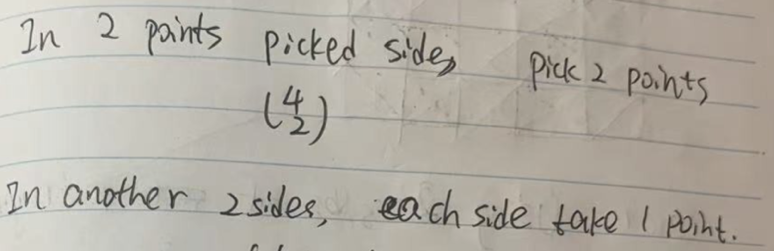 In 2 points picked side, pick 2 points
(4 2)
In another 2 sides, each side take 1 point.